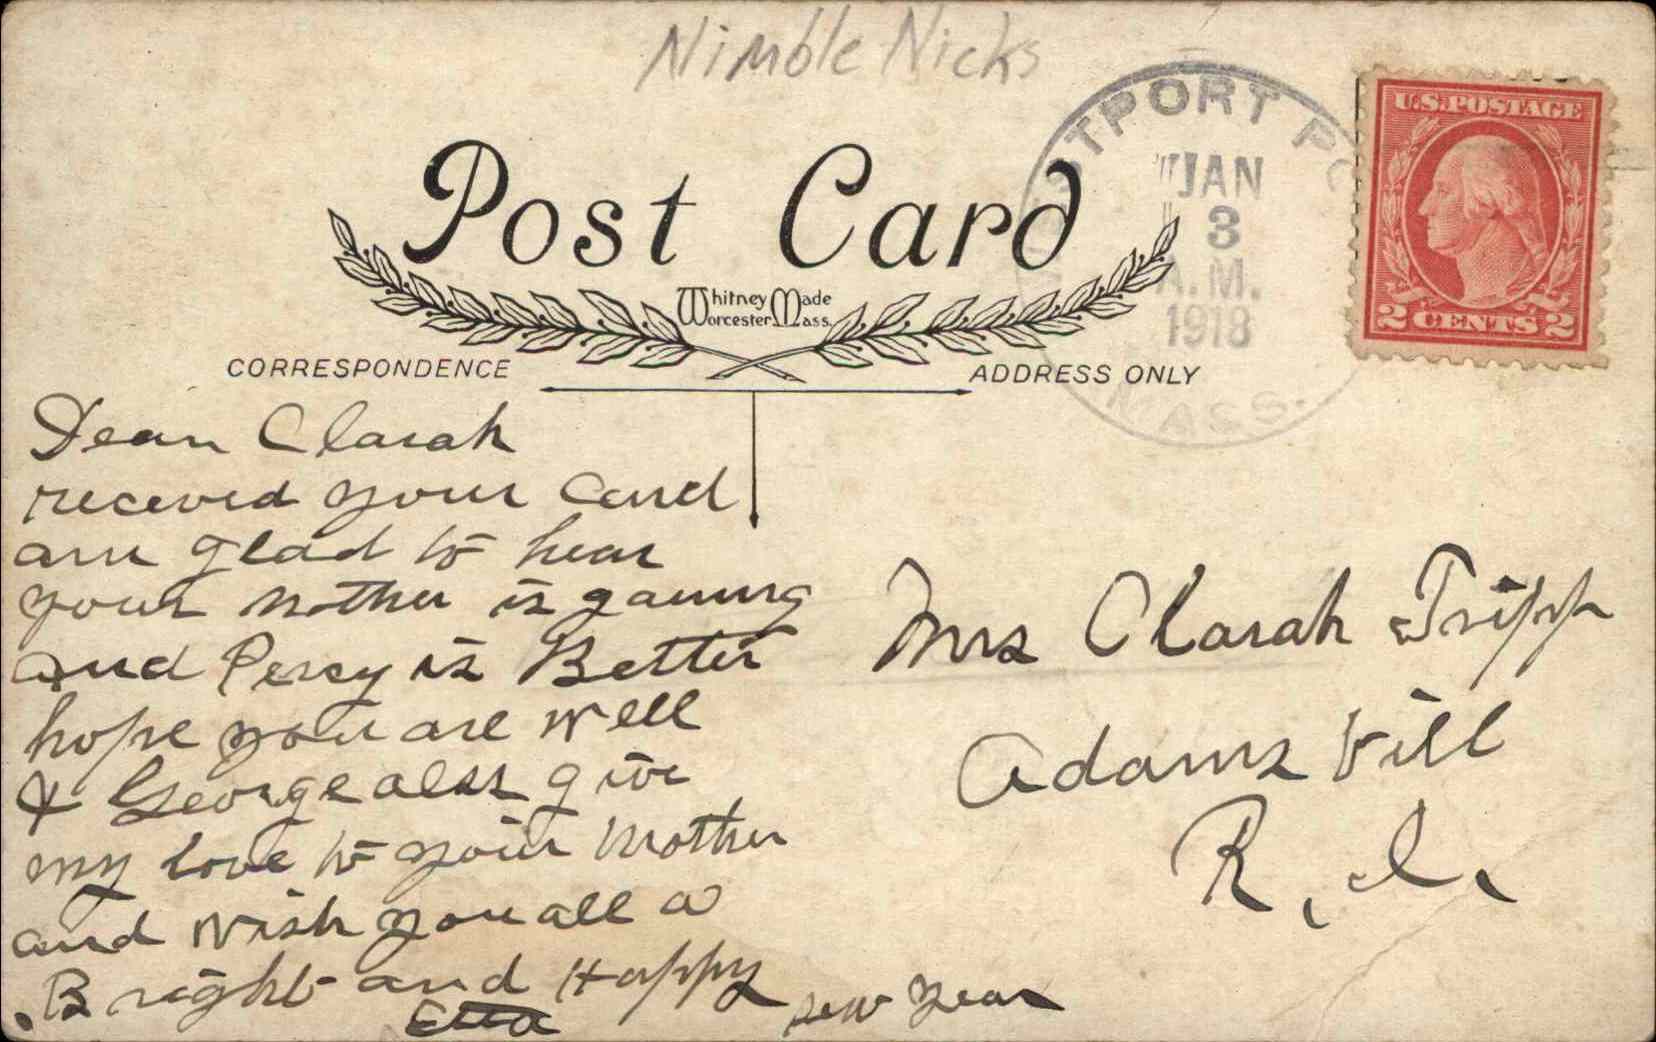 Nimble Nicks
STPORT PO
JAN
3
A.M.
1918
MASS.
U.S. POSTAGE
2 CENTS 2
Post Card
Whitney Made
Worcester Mass.
CORRESPONDENCE
ADDRESS ONLY
Dear Clarah
receved your Card
am glad to hear
your mother is gaining
and Percy is Better
hope you are well
& George also give
my love to your Mother
and wish you all a
Bright and Happy new year
Etta
Mrs Clarah Tripp
Adams vill
R. I.